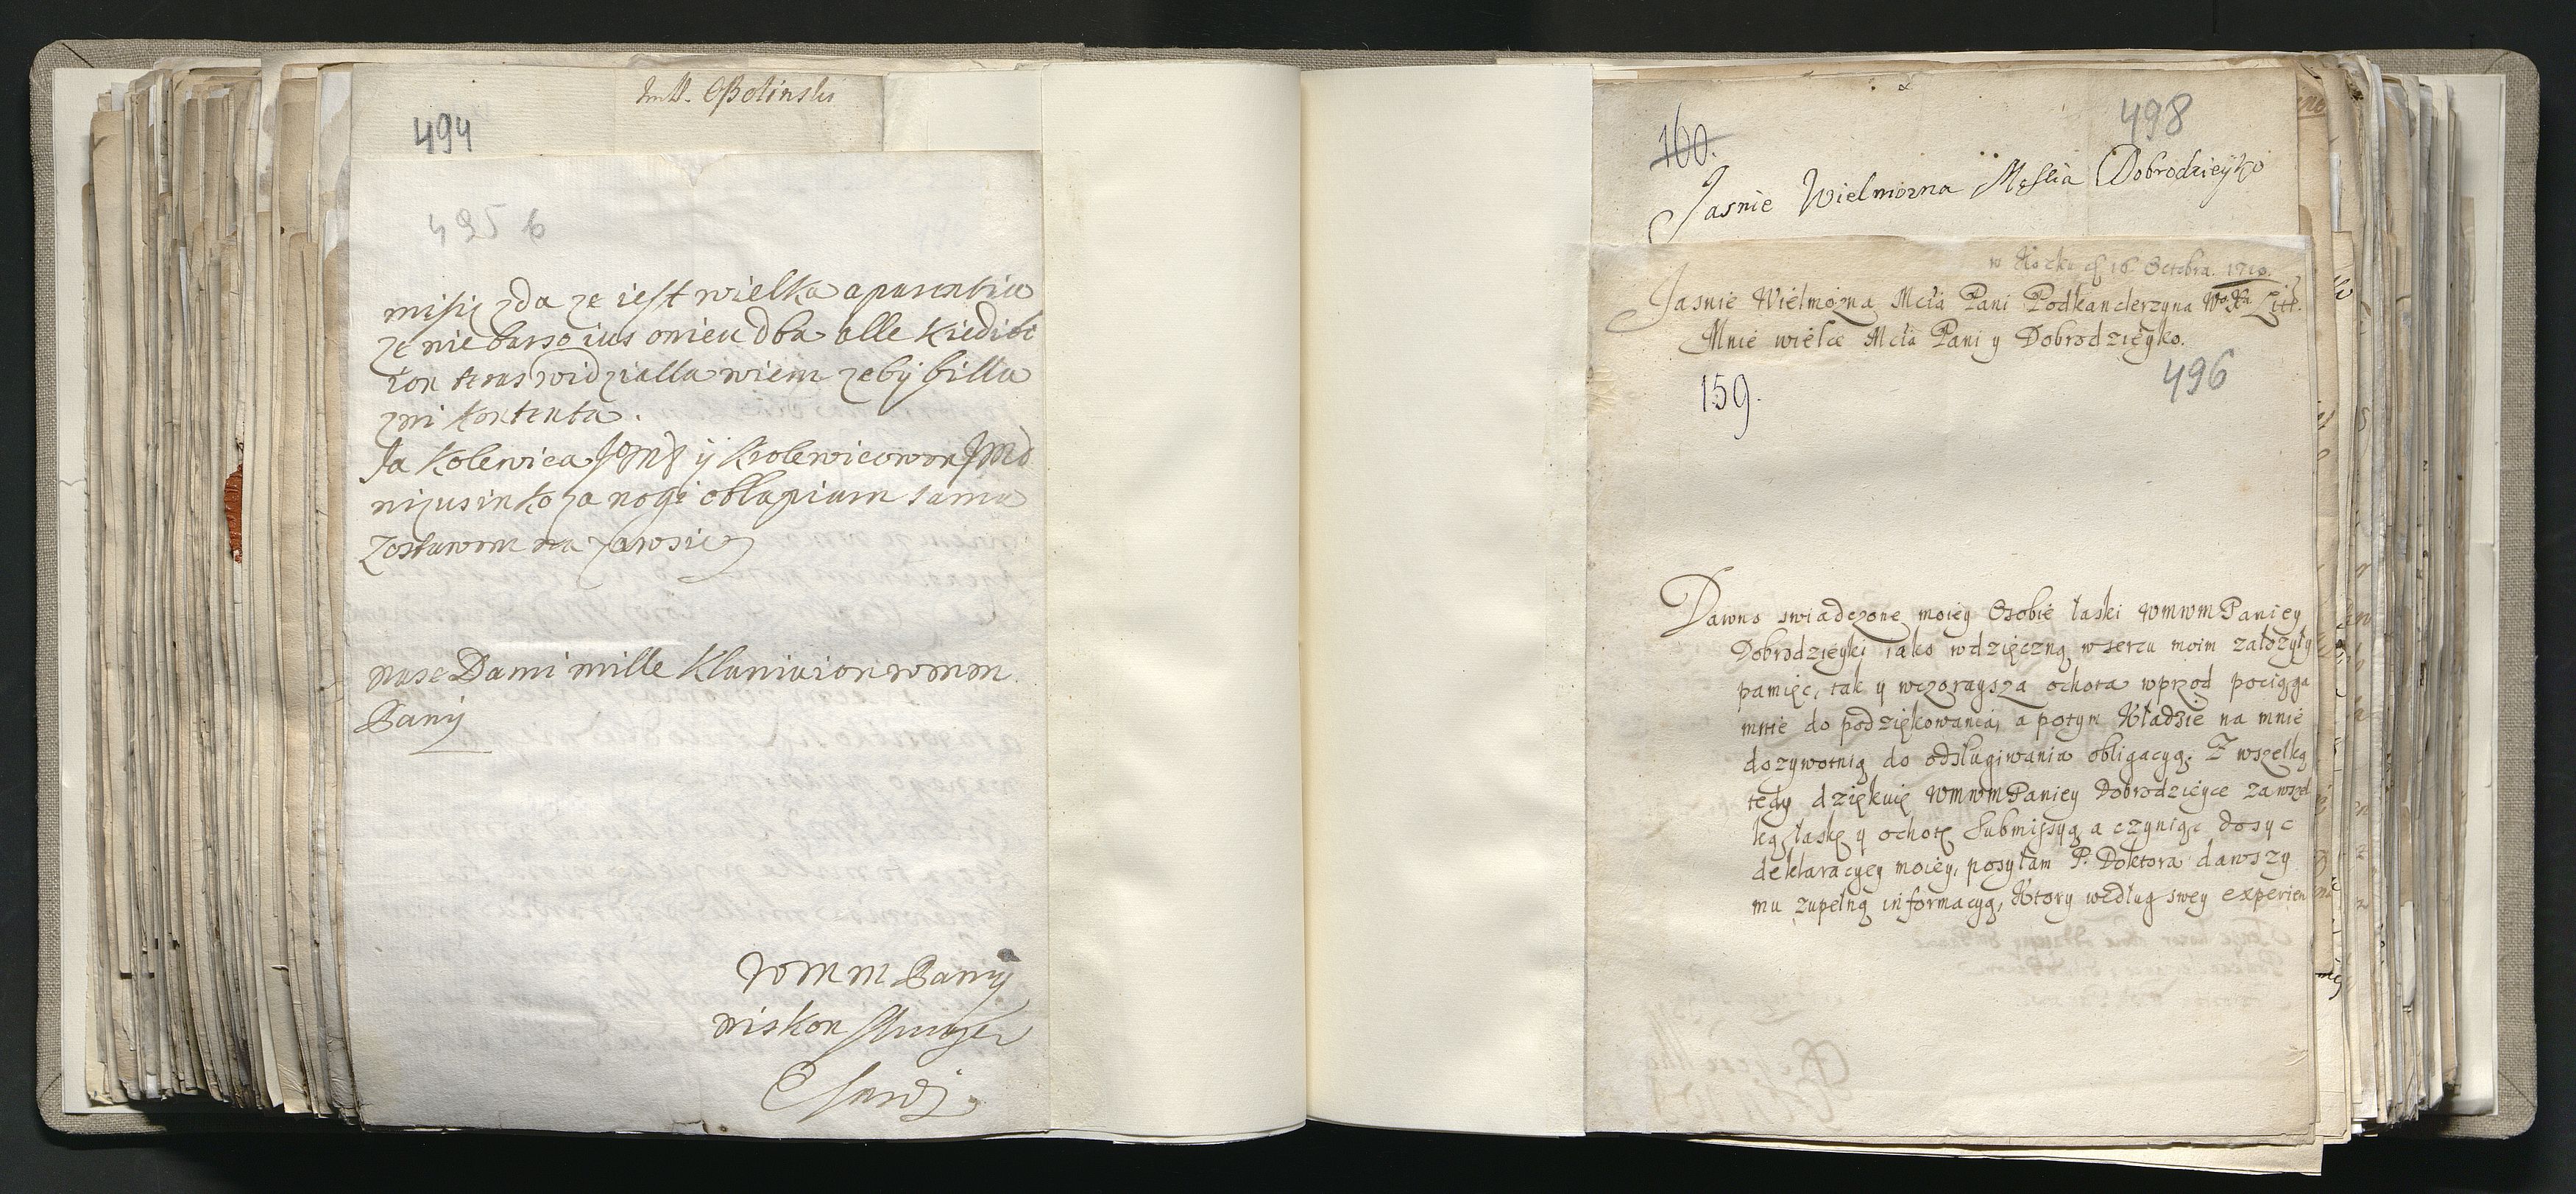 494
495 6
misię zda ze iest wielka aparentia
ze nie barso ius onieu dba alle kiedibi
ion teras widzialla wiem zebÿ billa
zni kontenta.
Ja Kolewica JoMs ÿ Krolewicowon JMs
nizusinko za nogi obłapium
Zostawom na zawsię
nase Dami mille Klaniaion womm
Banÿ
womm Banÿ
niskon
160.
498
Jasnie Wielmozna Mosscia Dobrodzieÿko
16 Octobra. 1710.
Jasnie Wielmozna Mcia Pani Podkanclerzyna Litt.
Mnie wielce Mcia Pani y Dobrodzieyko.
159.
496
Dawno swiadczone moiey Osobie łaski WMWM Paniey
Dobrodzieyki iako wdzięczną w sercu moim założyły
pamięc, tak y wczoraysza ochota wprzod pociąga
mnie do podziękowania, a potym Kładzie na mnie
dozywotnią do odsługiwania obligacyą. Z wszelką
tedy dziękuię WMWM Paniey Dobrodzieyce za wszel
ką łaskę y ochotę submissyą a czyniąc dosyc
deklaracyey moiey, posyłam P. Doktora dawszy
mu zupełną informacyą, Ktory według swey experien